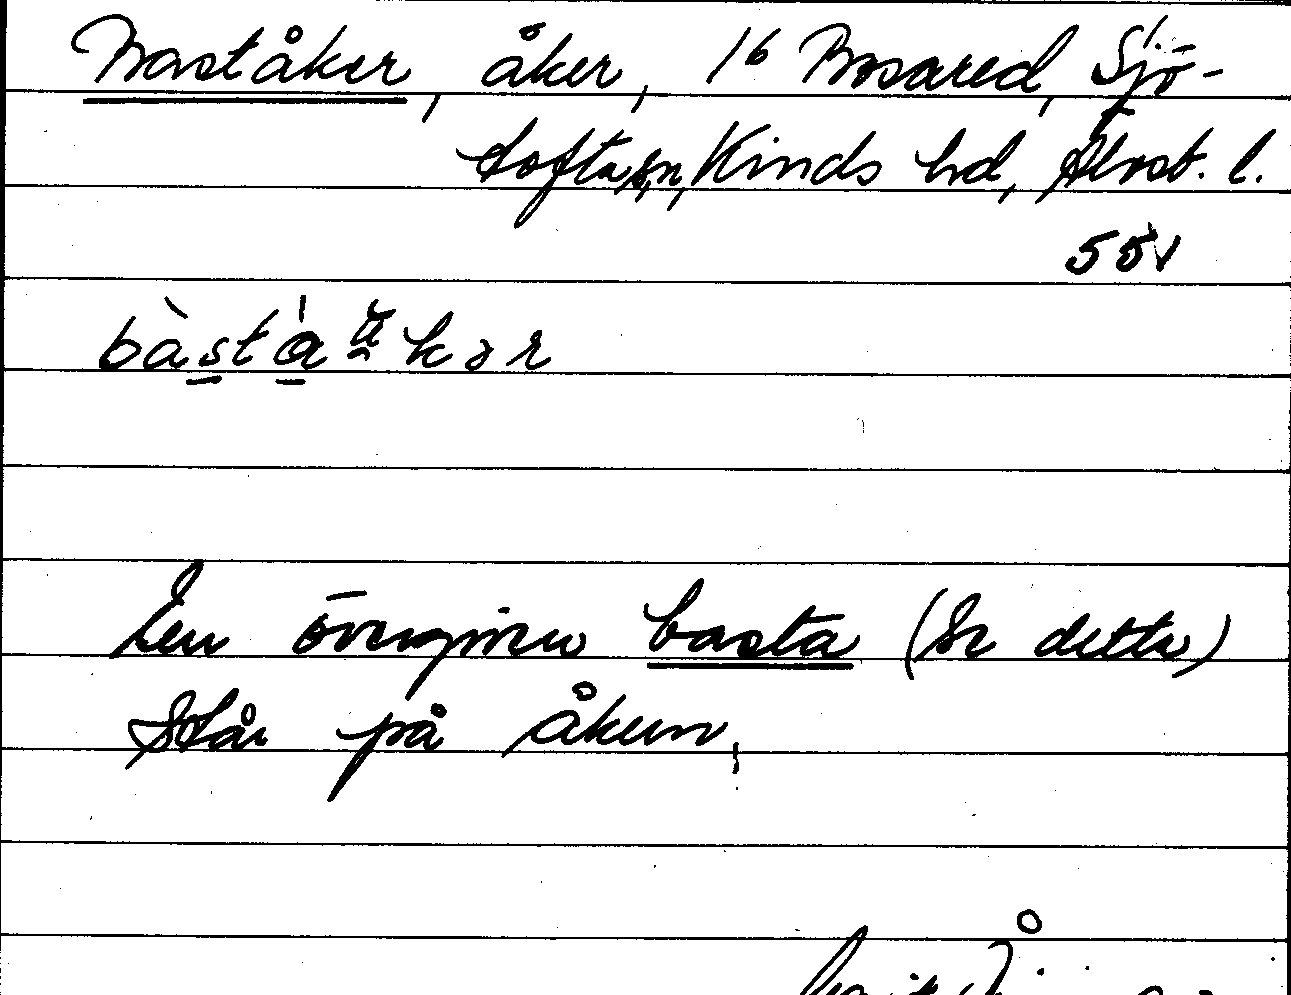 Baståker, åker, 16 Bosared, Sjö-
toftasn, Kinds hd, Älvsb. l.
551
bàstákər
En övergiven basta (se detta)
står på åkern.